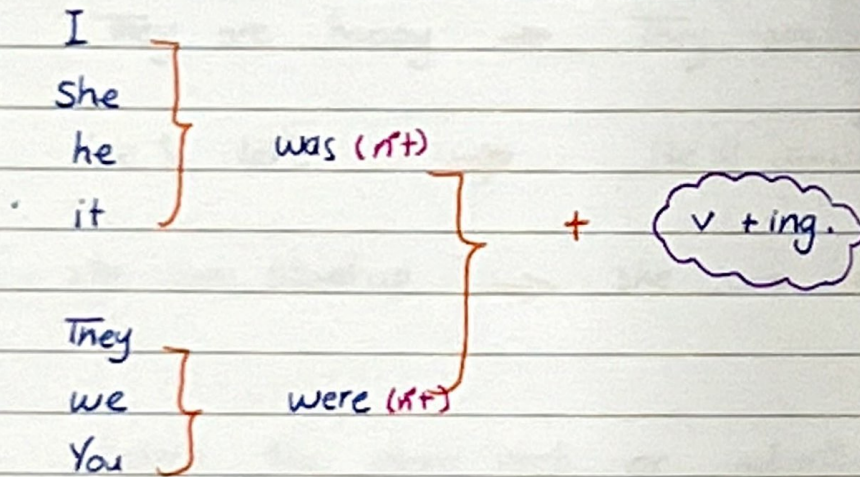 I
She
he
it
was (n't)
They
we
You
were (n't)
+
v + ing.